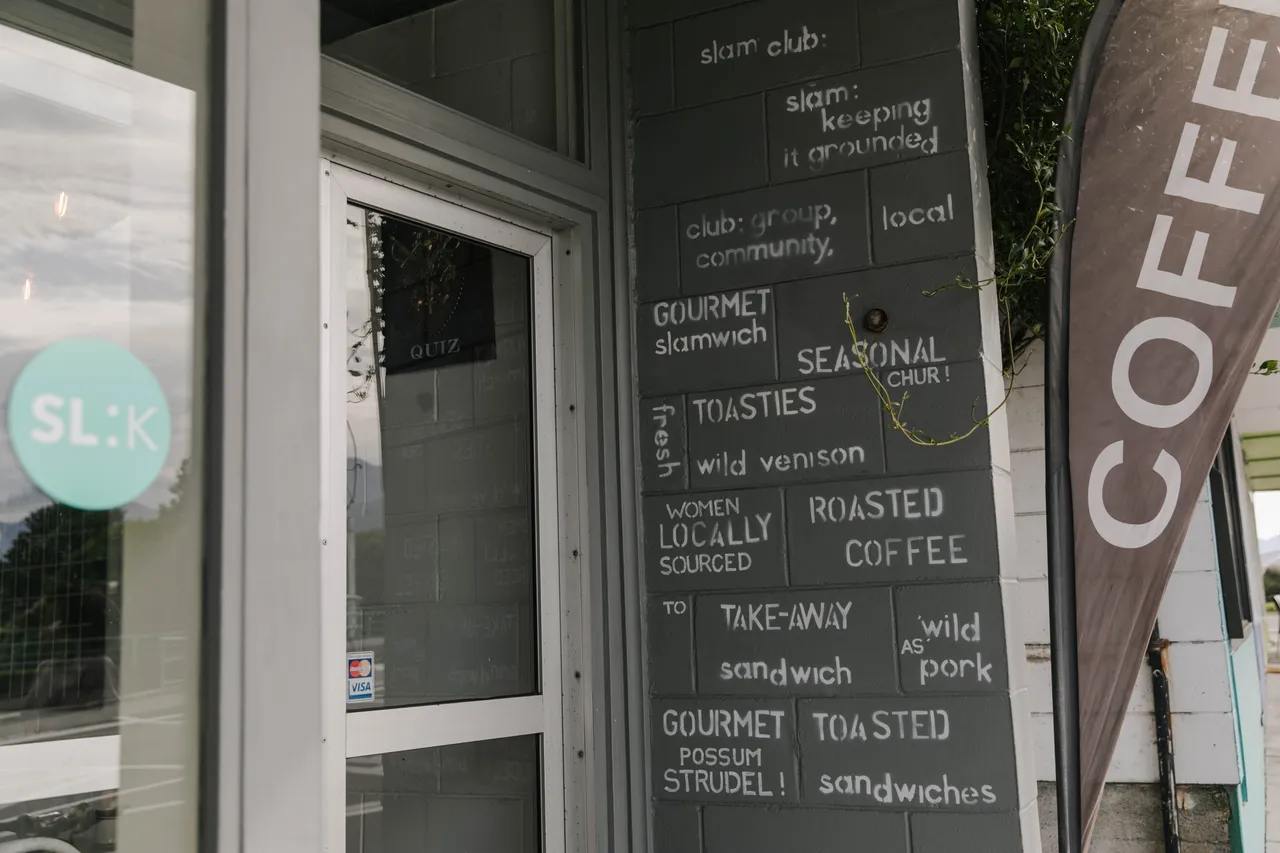 slam club:
slam:
keeping
it grounded
club: group,
community,
local
GOURMET
slamwich
SEASONAL
CHUR!
fresh
TOASTIES
wild venison
WOMEN
LOCALLY
SOURCED
ROASTED
COFFEE
TO
TAKE-AWAY
sandwich
AS
wild
pork
GOURMET
POSSUM
STRUDEL!
TOASTED
sandwiches
QUIZ
SL:K
VISA
COFFE